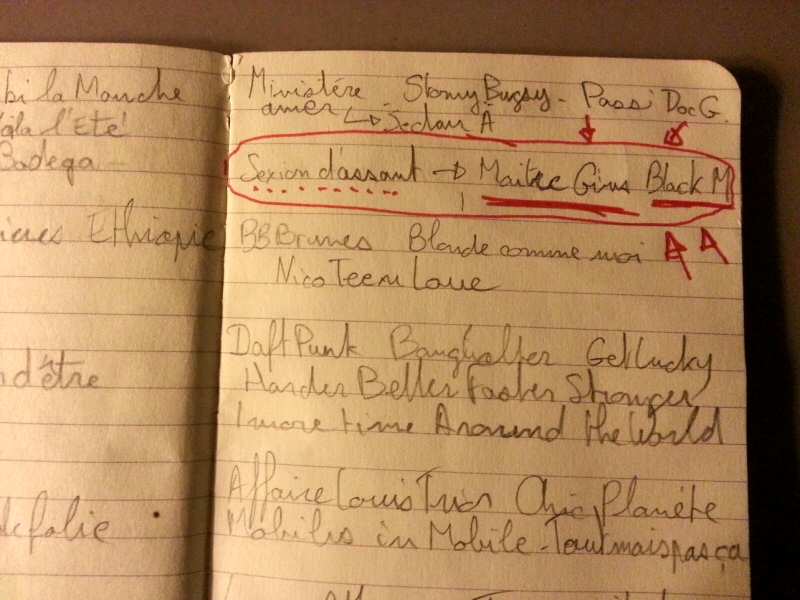 bi la Manche
là l'Eté
Bodega
Ethiopie
d'être
folie
Ministére Stomy Bugsy - Passi Doc G.
amer ↳ Secteur Ä
Sexion d'assaut → Maitre Gims Black M
A A
BB Brunes Blonde comme moi
Nico Teen Love
Daft Punk Banghalter Get Lucky
Harder Better Faster Stronger
1 more time Around the World
Affaire Louis Trio Chic Planéte
Mobilis in Mobile - Tout mais pas ça